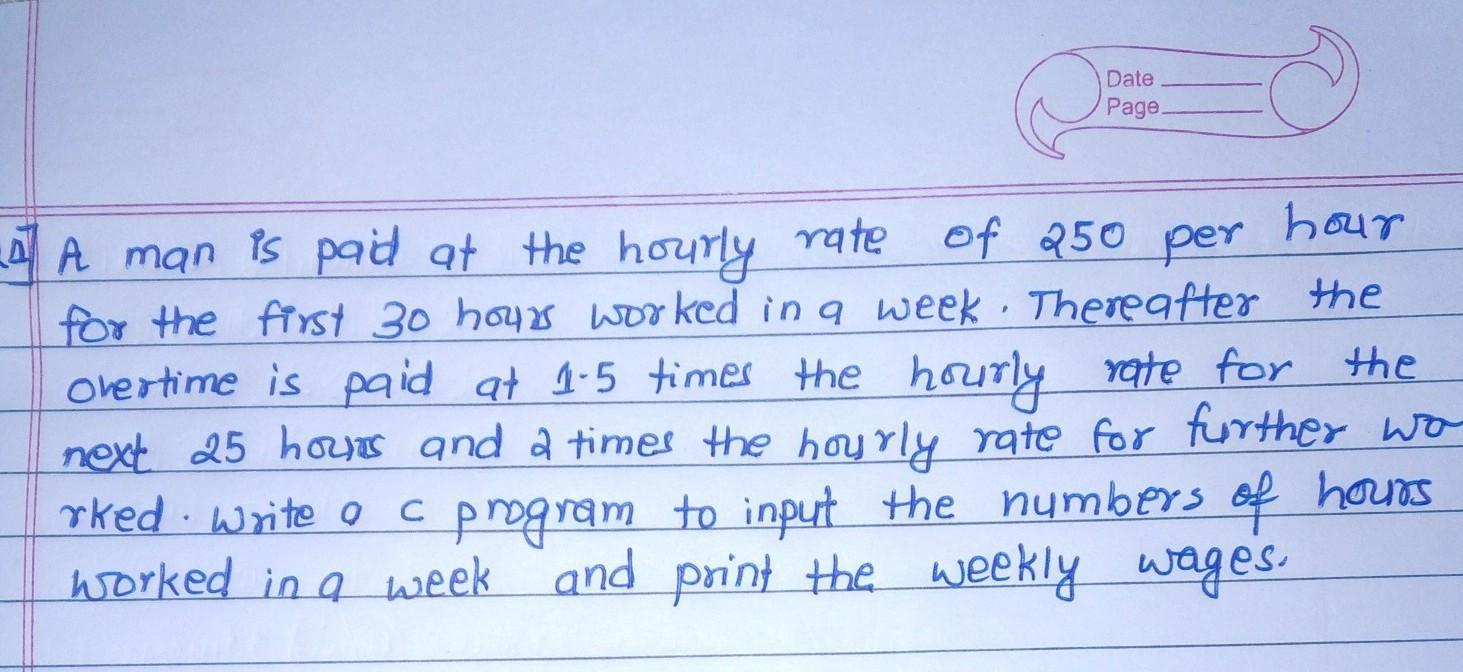 Date
Page
A man is paid at the hourly rate of 250 per hour
for the first 30 hours worked in a week. Thereafter the
overtime is paid at 1.5 times the hourly rate for the
next 25 hours and 2 times the hourly rate for further wo
rked. Write a c program to input the numbers of hours
worked in a week and print the weekly wages.